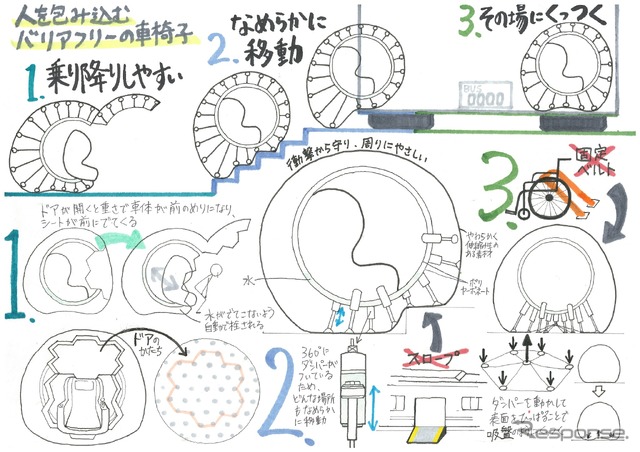 人を包み込む
バリアフリーの車椅子
1.乗り降りしやすい
2.なめらかに
移動
3.その場にくっつく
BUS
0000
衝撃から守り、周りにやさしい
固定
ベルト
3.
ドアが開くと重さで車体が前のめりになり、
シートが前にでてくる
1.
水がでてこないよう
自動で栓される
水
やわらかく
伸縮性の
ある素材
ポリ
カーボネート
ドアの
かたち
2.
360°に
ダンパーが
ついている
ため、
どんな場所
もなめらか
に移動
スロープ
ダンパーを動かして
表面を
ことで
吸盤
Response.